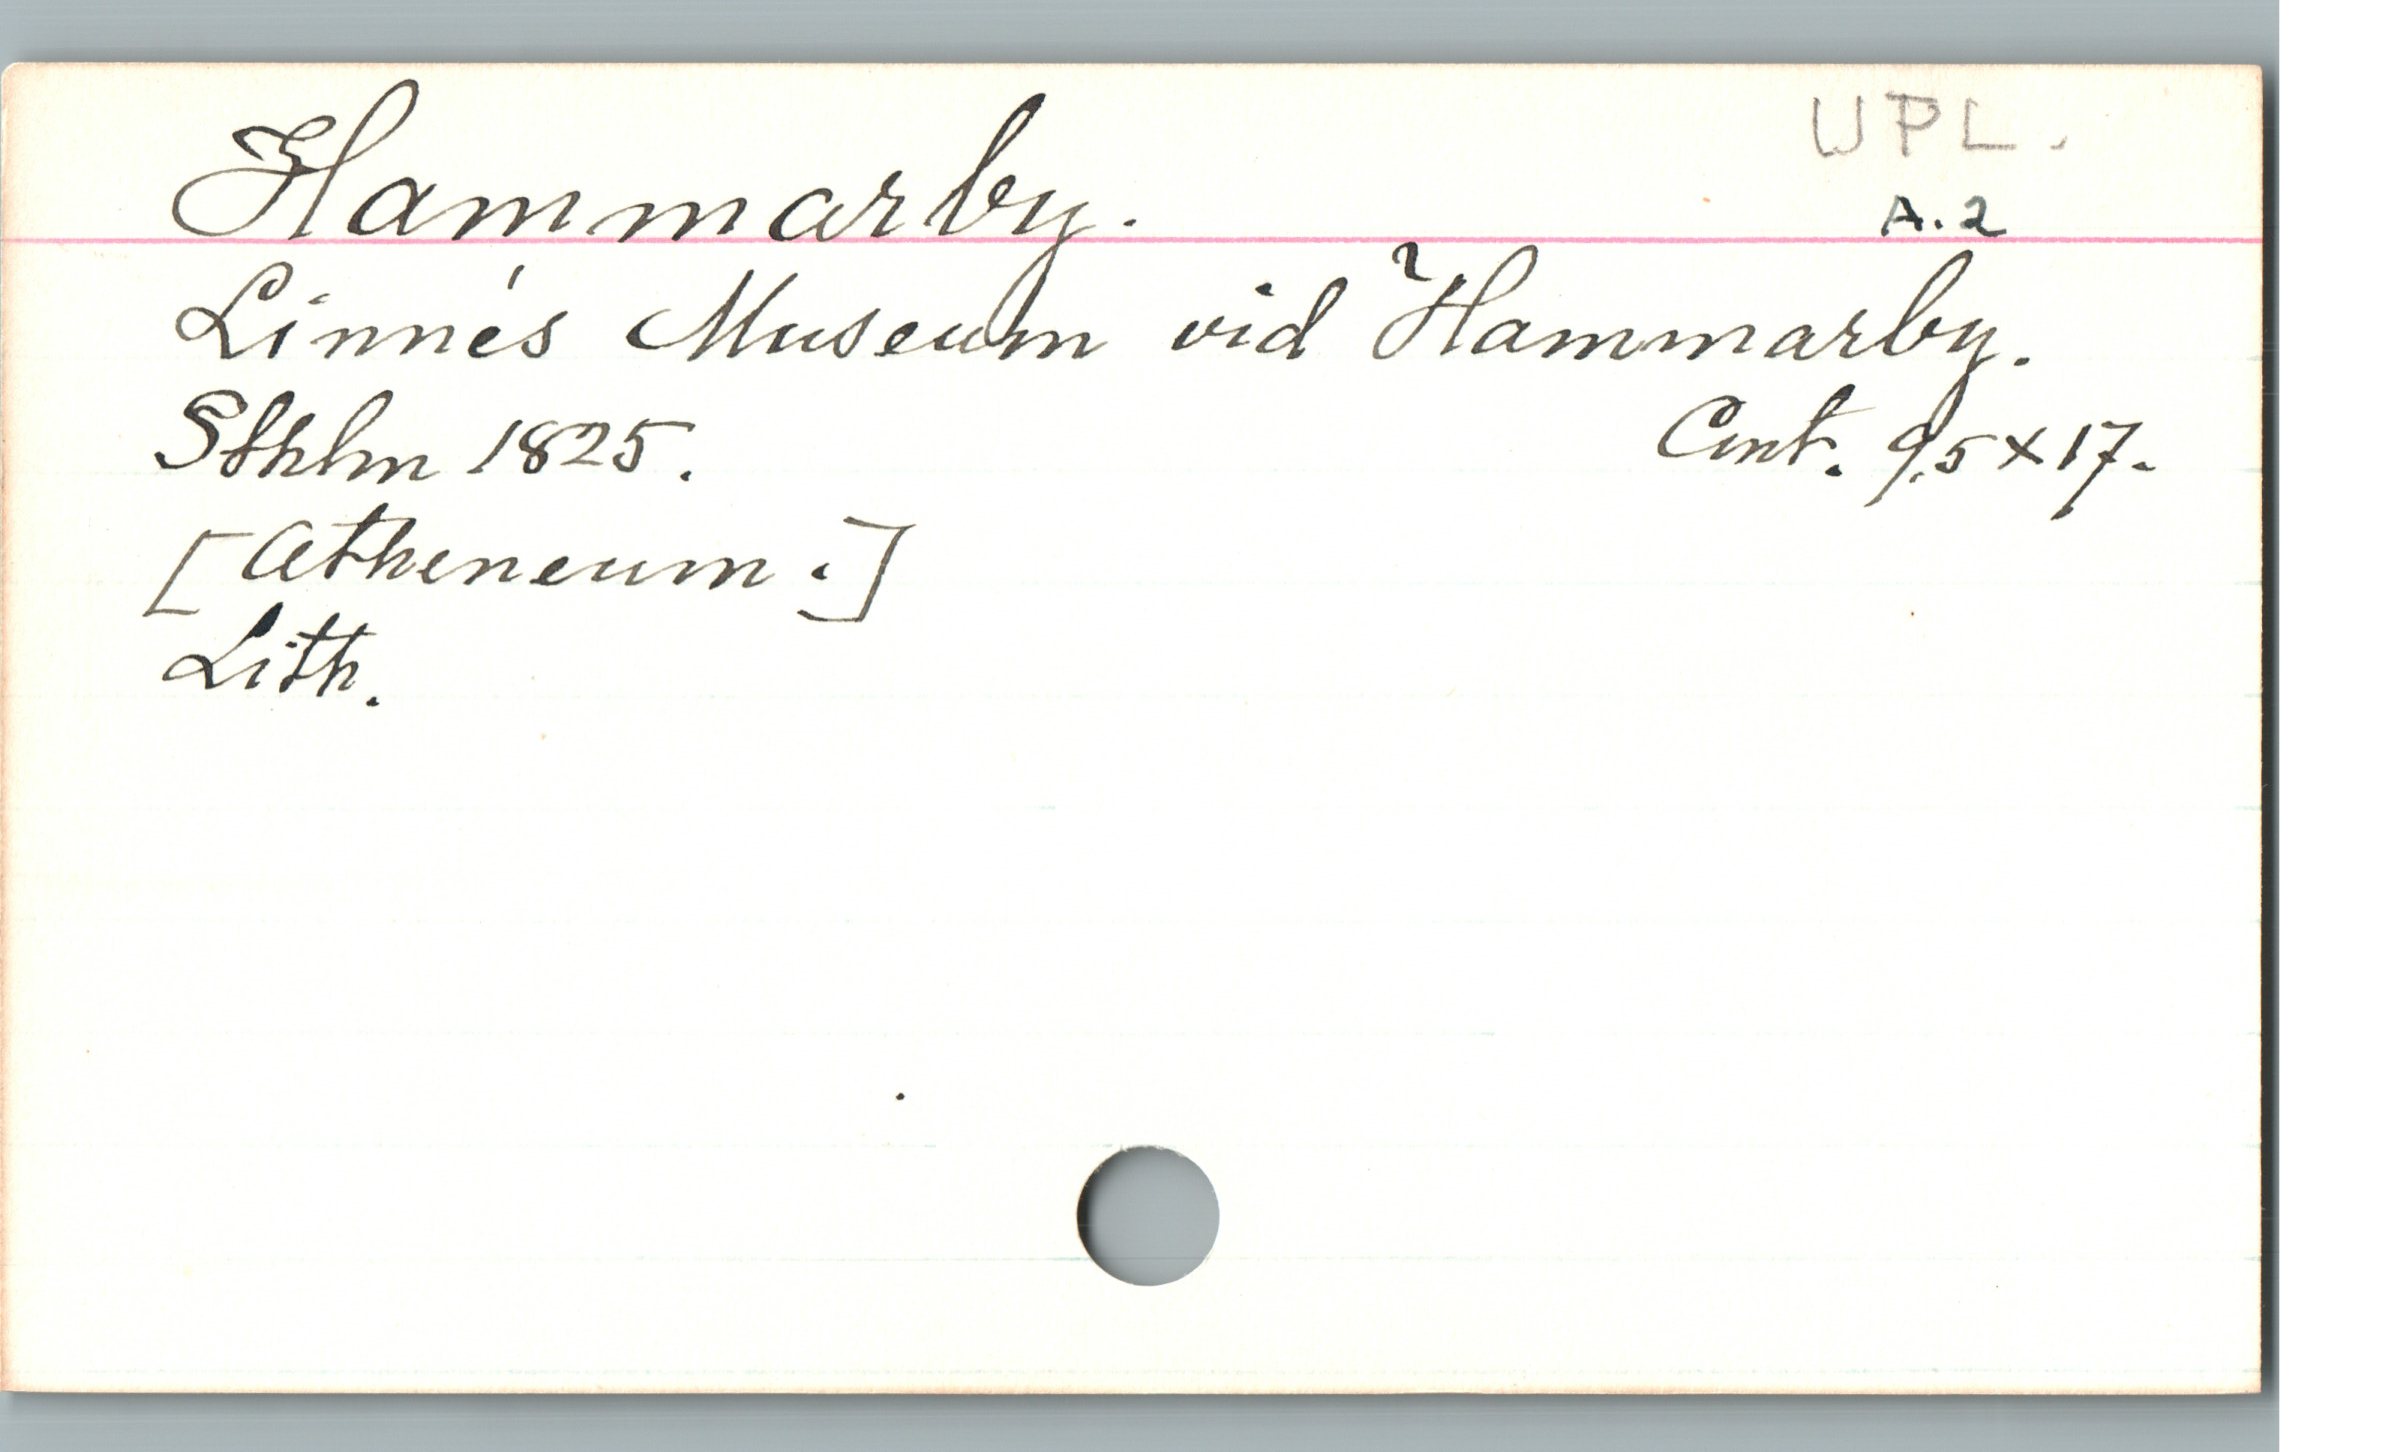 Hammarby.
UPL.
A.2
Linnés Museum vid Hammarby.
Sthlm 1825.
Cmt. 9,5 x 17.
[Atheneum.]
Lith.